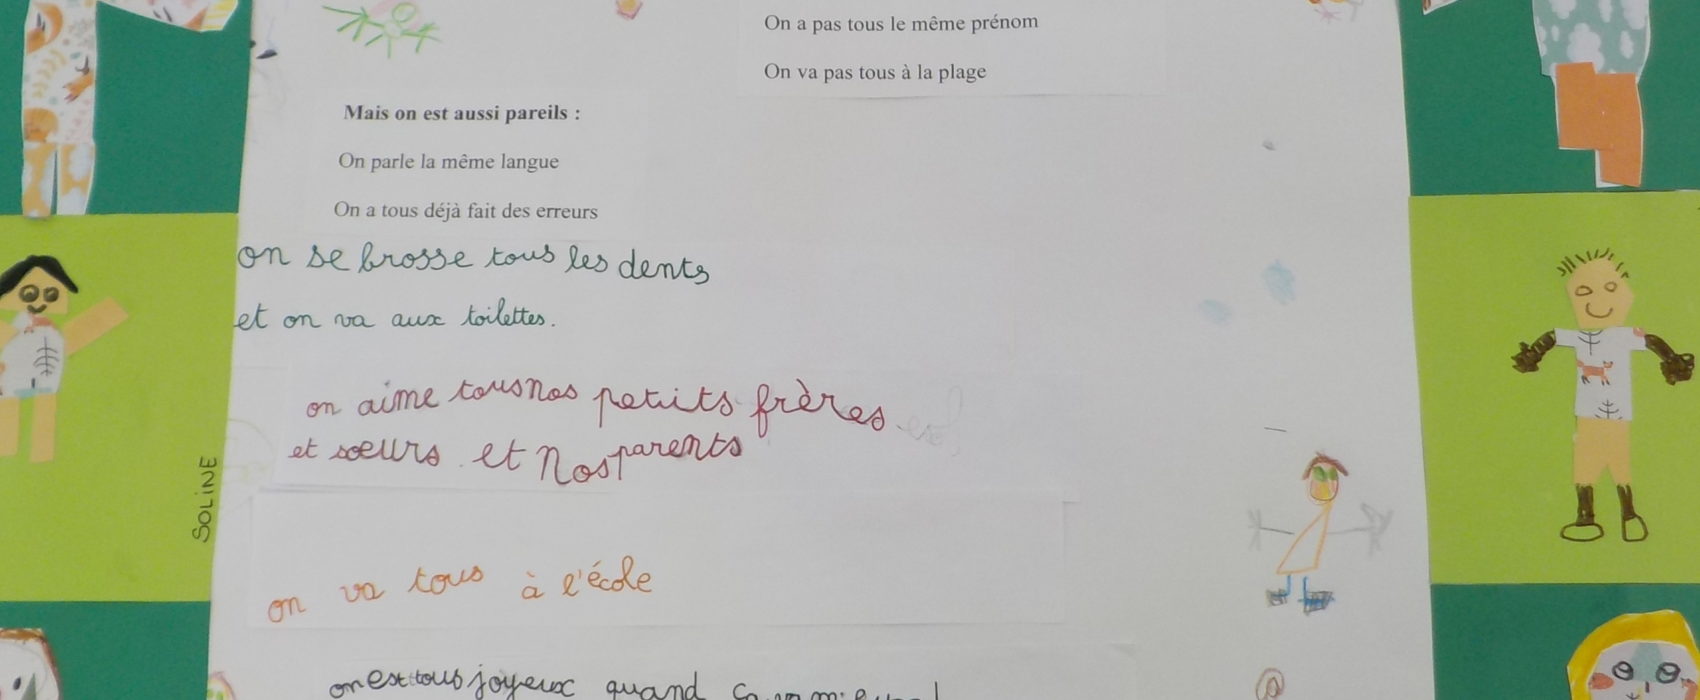 On a pas tous le même prénom
On va pas tous à la plage
Mais on est aussi pareils :
On parle la même langue
On a tous déjà fait des erreurs
on se brosse tous les dents
et on va aux toilettes.
on aime tous nos petits frères
et sœurs et nos parents
SOLINE
on va tous à l'école
on est tous joyeux quand